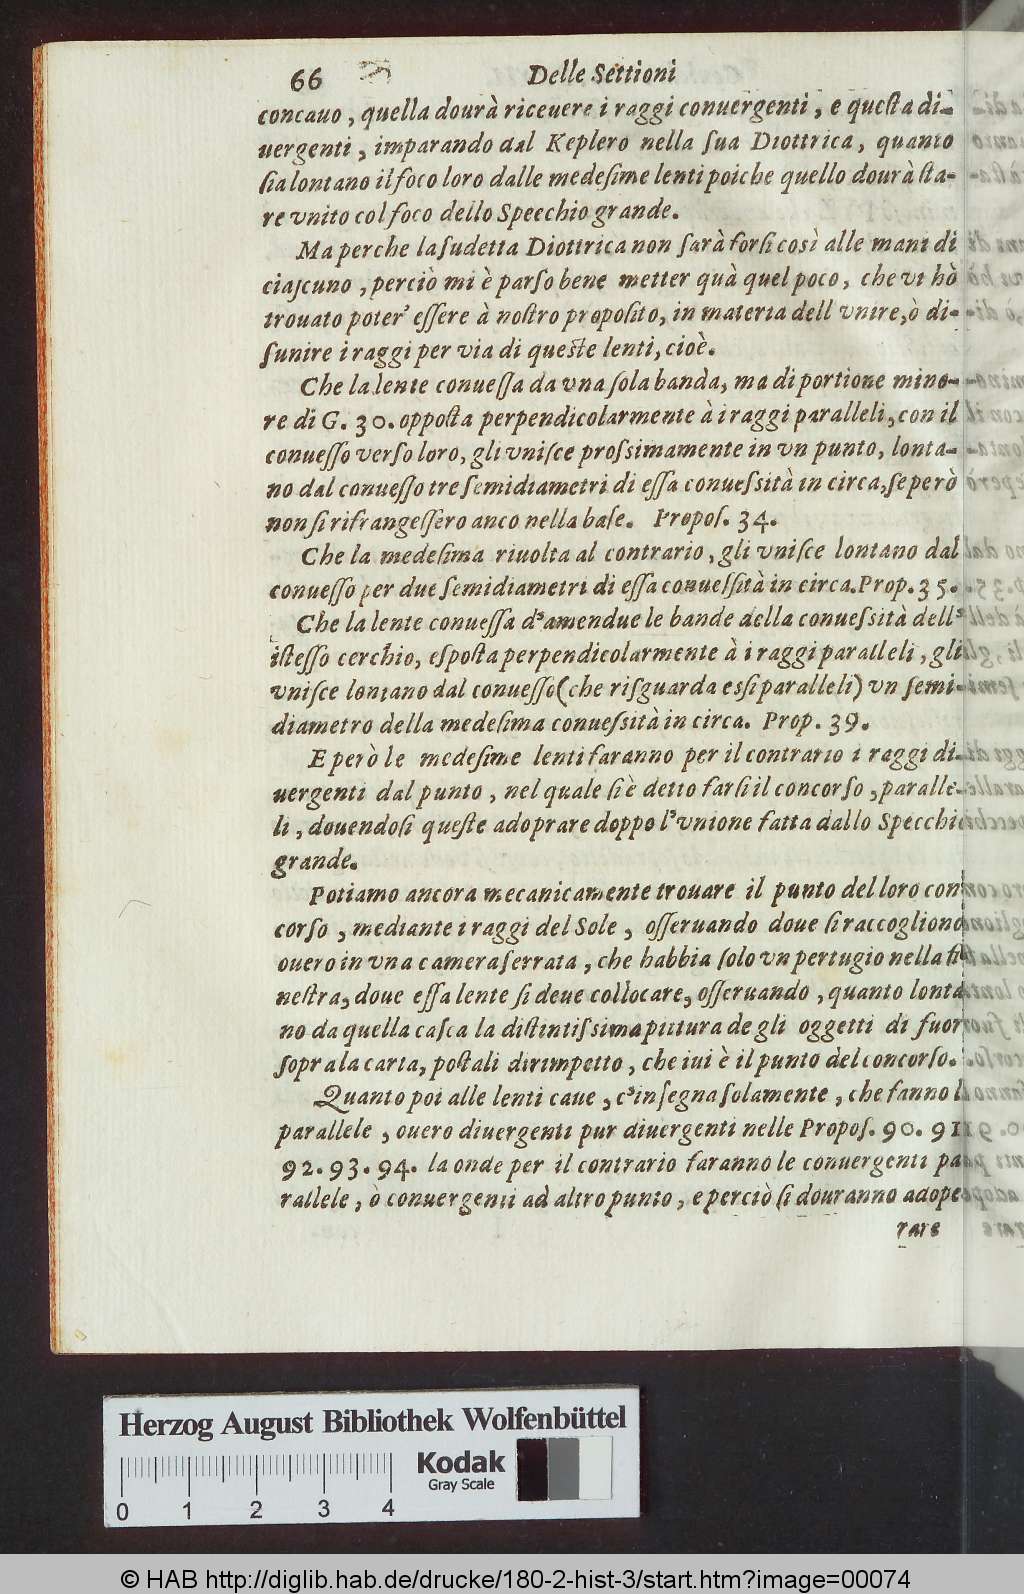 66 Delle Settioni
concauo, quella dourà riceuere i raggi conuergenti, e questa di-
uergenti, imparando dal Keplero nella sua Diottrica, quanto
sia lontano il foco loro dalle medesime lenti poiche quello dourà sta-
re vnito col foco dello Specchio grande.
Ma perche la sudetta Diottrica non sarà forsi così alle mani di
ciascuno, perciò mi è parso bene metter quà quel poco, che vi hò
trouato poter' essere à nostro proposito, in materia dell vnire, ò di-
sunire i raggi per via di queste lenti, cioè.
Che la lente conuessa da vna sola banda, ma di portione mino-
re di G. 30. opposta perpendicolarmente à i raggi paralleli, con il
conuesso verso loro, gli vnisce prossimamente in vn punto, lonta-
no dal conuesso tre semidiametri di essa conuessità in circa, se però
non si rifrangessero anco nella base. Propos. 34.
Che la medesima riuolta al contrario, gli vnisce lontano dal
conuesso per due semidiametri di essa conuessità in circa. Prop. 35.
Che la lente conuessa d'amendue le bande della conuessità dell'
istesso cerchio, esposta perpendicolarmente à i raggi paralleli, gli
vnisce lontano dal conuesso (che risguarda essi paralleli) vn semi-
diametro della medesima conuessità in circa. Prop. 39.
E però le medesime lenti faranno per il contrario i raggi di-
uergenti dal punto, nel quale si è detto farsi il concorso, paralle-
li, douendosi queste adoprare doppo l'vnione fatta dallo Specchio
grande.
Potiamo ancora mecanicamente trouare il punto del loro con
corso, mediante i raggi del Sole, osseruando doue si raccogliono
ouero in vna camera serrata, che habbia solo vn pertugio nella fi
nestra, doue essa lente si deue collocare, osseruando, quanto lonta
no da quella casca la distintissima pittura de gli oggetti di fuori
sopra la carta, postali dirimpetto, che iui è il punto del concorso.
Quanto poi alle lenti caue, c'insegna solamente, che fanno li
parallele, ouero diuergenti pur diuergenti nelle Propos. 90. 91
92. 93. 94. la onde per il contrario faranno le conuergenti pa
rallele, ò conuergenti ad altro punto, e perciò si douranno adope
rare
Herzog August Bibliothek Wolfenbüttel
Kodak
Gray Scale
0 1 2 3 4
© HAB http://diglib.hab.de/drucke/180-2-hist-3/start.htm?image=00074